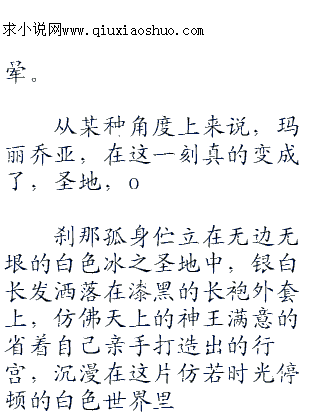 求小说网www.qiuxiaoshuo.com
荤。
从某种角度上来说，玛
丽乔亚，在这一刻真的变成
了，圣地，o
刹那孤身伫立在无边无
垠的白色冰之圣地中，银白
长发洒落在漆黑的长袍外套
上，仿佛天上的神王满意的
省着自己亲手打造出的行
宫，沉漫在这片仿若时光停
顿的白色世界里